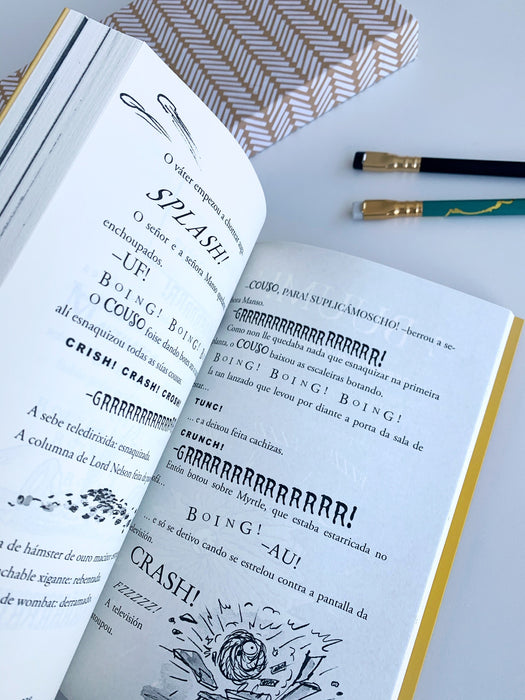 O váter empezou a chorrear auga.
SPLASH!
O señor e a señora Manso
enchoupados.
–UF!
BOING! BOING!
O COUSO foise dando botes
alí esnaquizou todas as súas cousas.
CRISH! CRASH! CROSH!
–GRRRRRRRRRRR
A sebe teledirixida: esnaquizada.
A columna de Lord Nelson feita
de hámster de ouro macizo
xigante: rebentada.
de wombat: derramado.
–COUSO, PARA! SUPLICÁMOSCHO! –berrou a se-
Manso.
–GRRRRRRRRRRRR RRRRRR!
Como non lle quedaba nada que esnaquizar na primeira
o COUSO baixou as escaleiras botando.
BOING! BOING! BOING!
tan lanzado que levou por diante a porta da sala de
TUNC!
... e a deixou feita cachizas.
CRUNCH!
–GRRRRRRRRRRRRRRR!
Entón botou sobre Myrtle, que estaba estarricada no
BOING!
–AU!
... e só se detivo cando se estrelou contra a pantalla da
CRASH!
FZZZZZZ!
A televisión